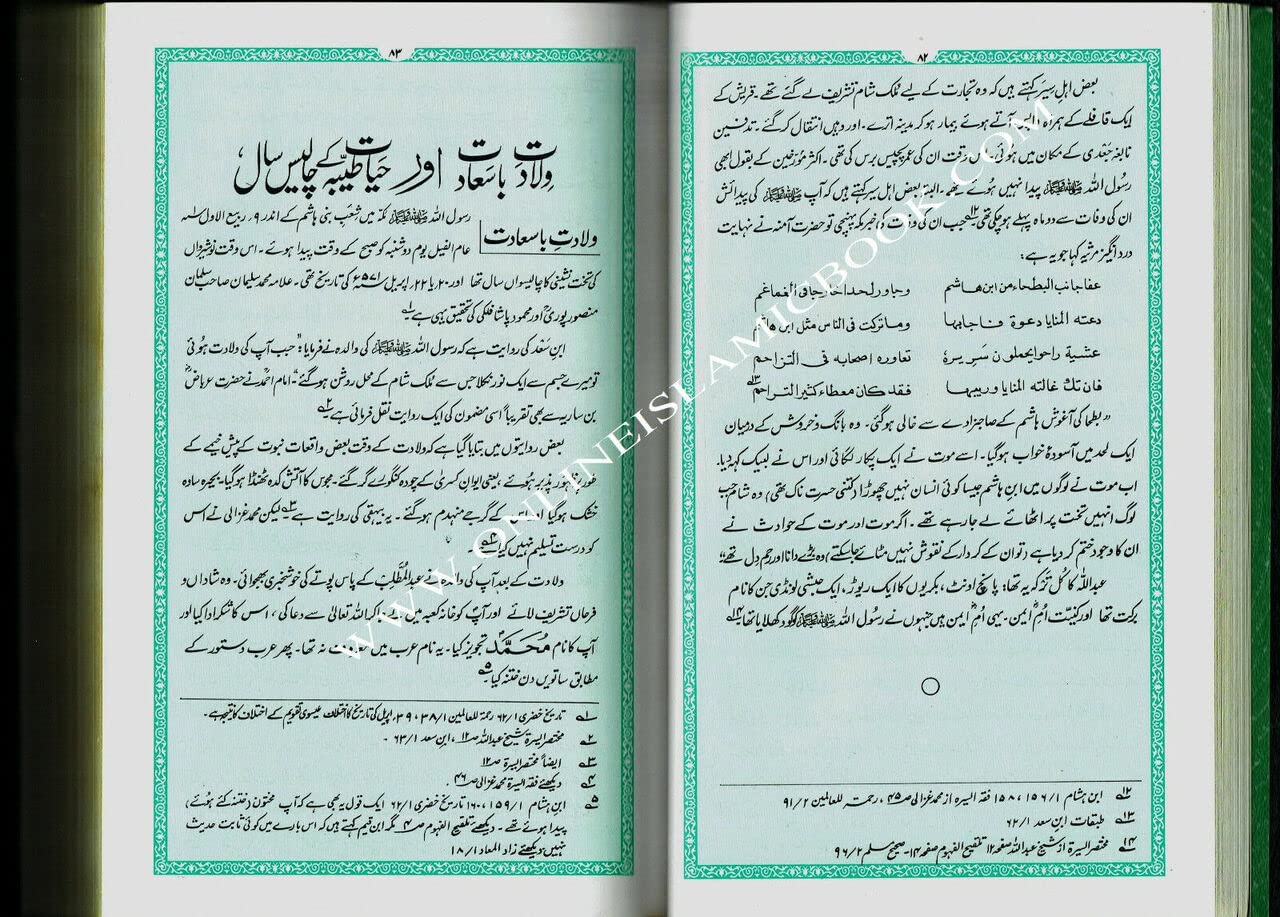 ۸۲
بعض اہلِ سِیَر کہتے ہیں کہ وہ تجارت کے لیے ملک شام تشریف لے گئے تھے۔ قریش کے
ایک قافلے کے ہمراہ واپس آتے ہوئے بیمار ہو کر مدینہ اترے۔ اور وہیں انتقال کر گئے۔ تدفین
نابغہ جَعدی کے مکان میں ہوئی۔ اس وقت ان کی عمر پچیس برس کی تھی۔ اکثر مؤرخین کے بقول ابھی
رسُول اللہ ﷺ پیدا نہیں ہوئے تھے۔ البتہ بعض اہل سیر کہتے ہیں کہ آپ ﷺ کی پیدائش
ان کی وفات سے دو ماہ پہلے ہو چکی تھی۔ ۱۲ جب ان کی وفات کی خبر مکہ پہنچی تو حضرت آمنہ نے نہایت
درد انگیز مرثیہ کہا جو یہ ہے:
عفا جانب البطحاء من ابن ھاشم وجاور لحدا خارجا فی الغماغم
دعته المنایا دعوة فاجابها وما ترکت فی الناس مثل ابن ھاشم
عشیة راحوا یحملون سریرہ تعاورہ اصحابه فی التزاحم
فان تك غالته المنایا وریبها فقد کان معطاء کثیر التراحم ۱۳
"بطحا کی آغوش ہاشم کے صاجزادے سے خالی ہو گئی۔ وہ بانگ و خروش کے درمیان
ایک لحد میں آسودۂ خواب ہو گیا۔ اسے موت نے ایک پکار لگائی اور اس نے لبیک کہہ دیا۔
اب موت نے لوگوں میں ابنِ ہاشم جیسا کوئی انسان نہیں چھوڑا (کتنی حسرت ناک تھی) وہ شام جب
لوگ انہیں تخت پر اٹھائے لے جا رہے تھے۔ اگر موت اور موت کے حوادث نے
ان کا وجود ختم کر دیا ہے (تو ان کے کردار کے نقوش نہیں مٹائے جا سکتے) وہ بڑے دانا اور رحم دِل تھے"
عبداللہ کا کُل تَرَکہ یہ تھا: پانچ اونٹ، بکریوں کا ایک ریوڑ، ایک حبشی لونڈی جن کا نام
برکت تھا اور کنیت اُمِّ ایمن۔ یہی اُمِّ ایمن ہیں جنہوں نے رسُول اللہ ﷺ کو گود کھلایا تھا۔ ۱۴
۱۲ ابن ہشام ۱/ ۱۵۶، ۱۵۸ فقہ السیرہ از محمد غزالی ص ۴۵، رحمۃ للعالمین ۲/ ۹۱
۱۳ طبقات ابن سعد ۱/ ۶۲
۱۴ مختصر السیرۃ از شیخ عبداللہ صفحہ ۱۲ تلقیح الفہوم صفحہ ۱۴۔ صحیح مسلم ۲/ ۹۶
۸۳
وِلادتِ باسَعادت اور حیاتِ طیّبہ کے چالیس سال
ولادتِ باسعادت
رسول اللہ ﷺ مکہ میں شعبِ بنی ہاشم کے اندر ۹، ربیع الاول سلہ
عام الفیل یوم دوشنبہ کو صبح کے وقت پیدا ہوئے۔ اس وقت نوشیرواں
کی تخت نشینی کا چالیسواں سال تھا اور ۲۰ یا ۲۲، اپریل ۵۷۱ء کی تاریخ تھی۔ علامہ محمد سلیمان صاحب سلمان
منصور پوری اور محمود پاشا فلکی کی تحقیق یہی ہے۔ ۱
ابنِ سعد کی روایت ہے کہ رسول اللہ ﷺ کی والدہ نے فرمایا: "جب آپ کی ولادت ہوئی
تو میرے جسم سے ایک نور نکلا جس سے ملک شام کے محل روشن ہو گئے۔" امام احمد نے حضرت عرباض
بن ساریہ سے بھی تقریباً اسی مضمون کی ایک روایت نقل فرمائی ہے۔ ۲
بعض روایتوں میں بتایا گیا ہے کہ ولادت کے وقت بعض واقعات نبوت کے پیش خیمے کے
طور پر ظہور پذیر ہُوئے، یعنی ایوانِ کسریٰ کے چودہ کنگورے گر گئے۔ مجوس کا آتش کدہ ٹھنڈا ہو گیا۔ بحیرہ سادہ
خشک ہو گیا اور اس کے گرجے منہدم ہو گئے۔ یہ بیہقی کی روایت ہے۔ ۳ لیکن محمد غزالی نے اس
کو درست تسلیم نہیں کیا ۴۔
ولادت کے بعد آپ کی والدہ نے عبدالمُطَّلب کے پاس پوتے کی خوشخبری بھجوائی۔ وہ شاداں و
فرحاں تشریف لائے اور آپ کو خانہ کعبہ میں لے جا کر اللہ تعالیٰ سے دعا کی، اس کا شکر ادا کیا اور
آپ کا نام مُحَمَّد تجویز کیا۔ یہ نام عرب میں معروف نہ تھا۔ پھر عرب دستور کے
مطابق ساتویں دن ختنہ کیا۔ ۵
۱ تاریخ خضری ۱/ ۶۲ رحمۃ للعالمین ۱/ ۳۸، ۳۹، اپریل کی تاریخ کا اختلاف عیسوی تقویم کے اختلاف کا نتیجہ ہے۔
۲ مختصر السیرۃ شیخ عبداللہ ص ۱۲، ابن سعد ۱/ ۶۳۔
۳ ایضاً مختصر السیرۃ ص ۱۲
۴ دیکھئے فقہ السیرۃ محمد غزالی ص ۴۶۔
۵ ابن ہشام ۱/ ۱۵۹، ۱۶۰ تاریخ خضری ۱/ ۶۲ ایک قول یہ بھی ہے کہ آپ مختون (ختنہ کئے ہُوئے)
پیدا ہوئے تھے۔ دیکھئے تلقیح الفہوم ص ۴ مگر ابن قیم کہتے ہیں کہ اس بارے میں کوئی ثابت حدیث
نہیں دیکھئے زاد المعاد ۱/ ۱۸
WWW.ONLINEISLAMICBOOK.COM